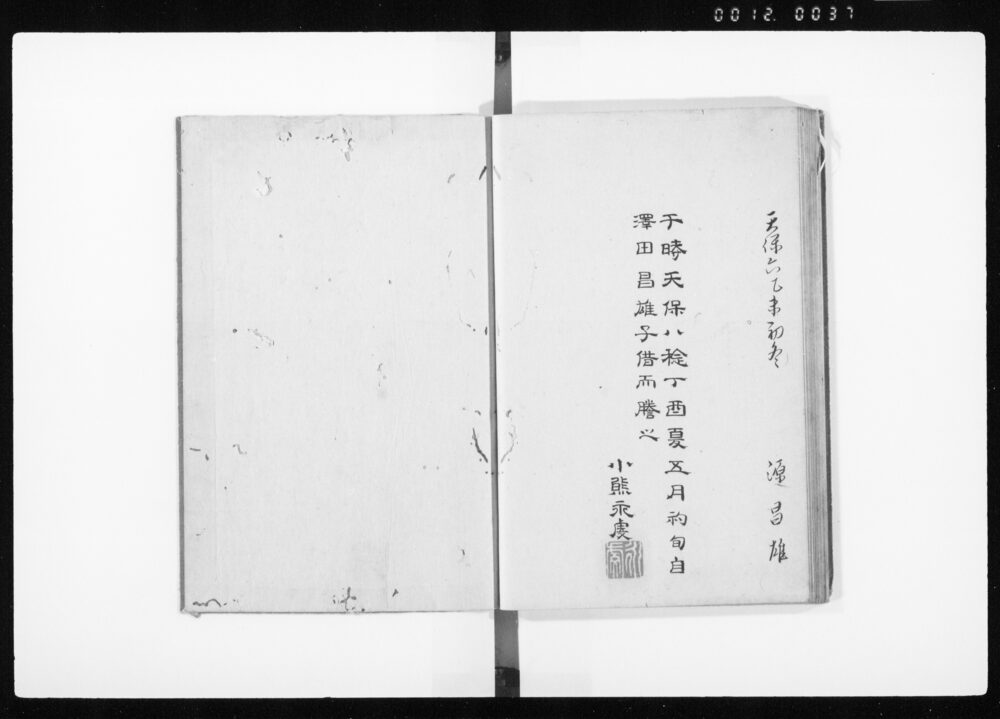 0012.0037
天保六乙未初冬
源昌雄
于時天保八稔丁酉夏五月初旬自
澤田昌雄子借而謄之
小熊永虔